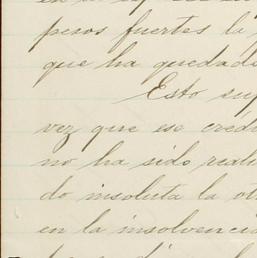 pesos fuertes la
que ha quedad
Esto sup
vez que ese créd
no ha sido reali
do insoluta la ot
en la insolvenci